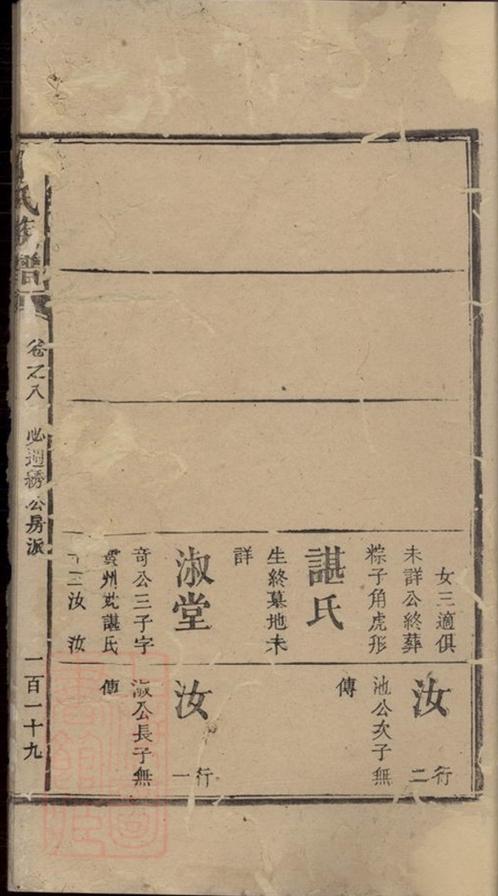 女三適俱
未詳公終葬
粽子角虎形
諶氏
生終墓地未
詳
淑堂
奇公三子字
州 諶氏
汝 汝
汝 行二
池公次子無
傳
汝 行一
淑公長子無
傳
氏族譜
卷之八
公房派
一百一十九